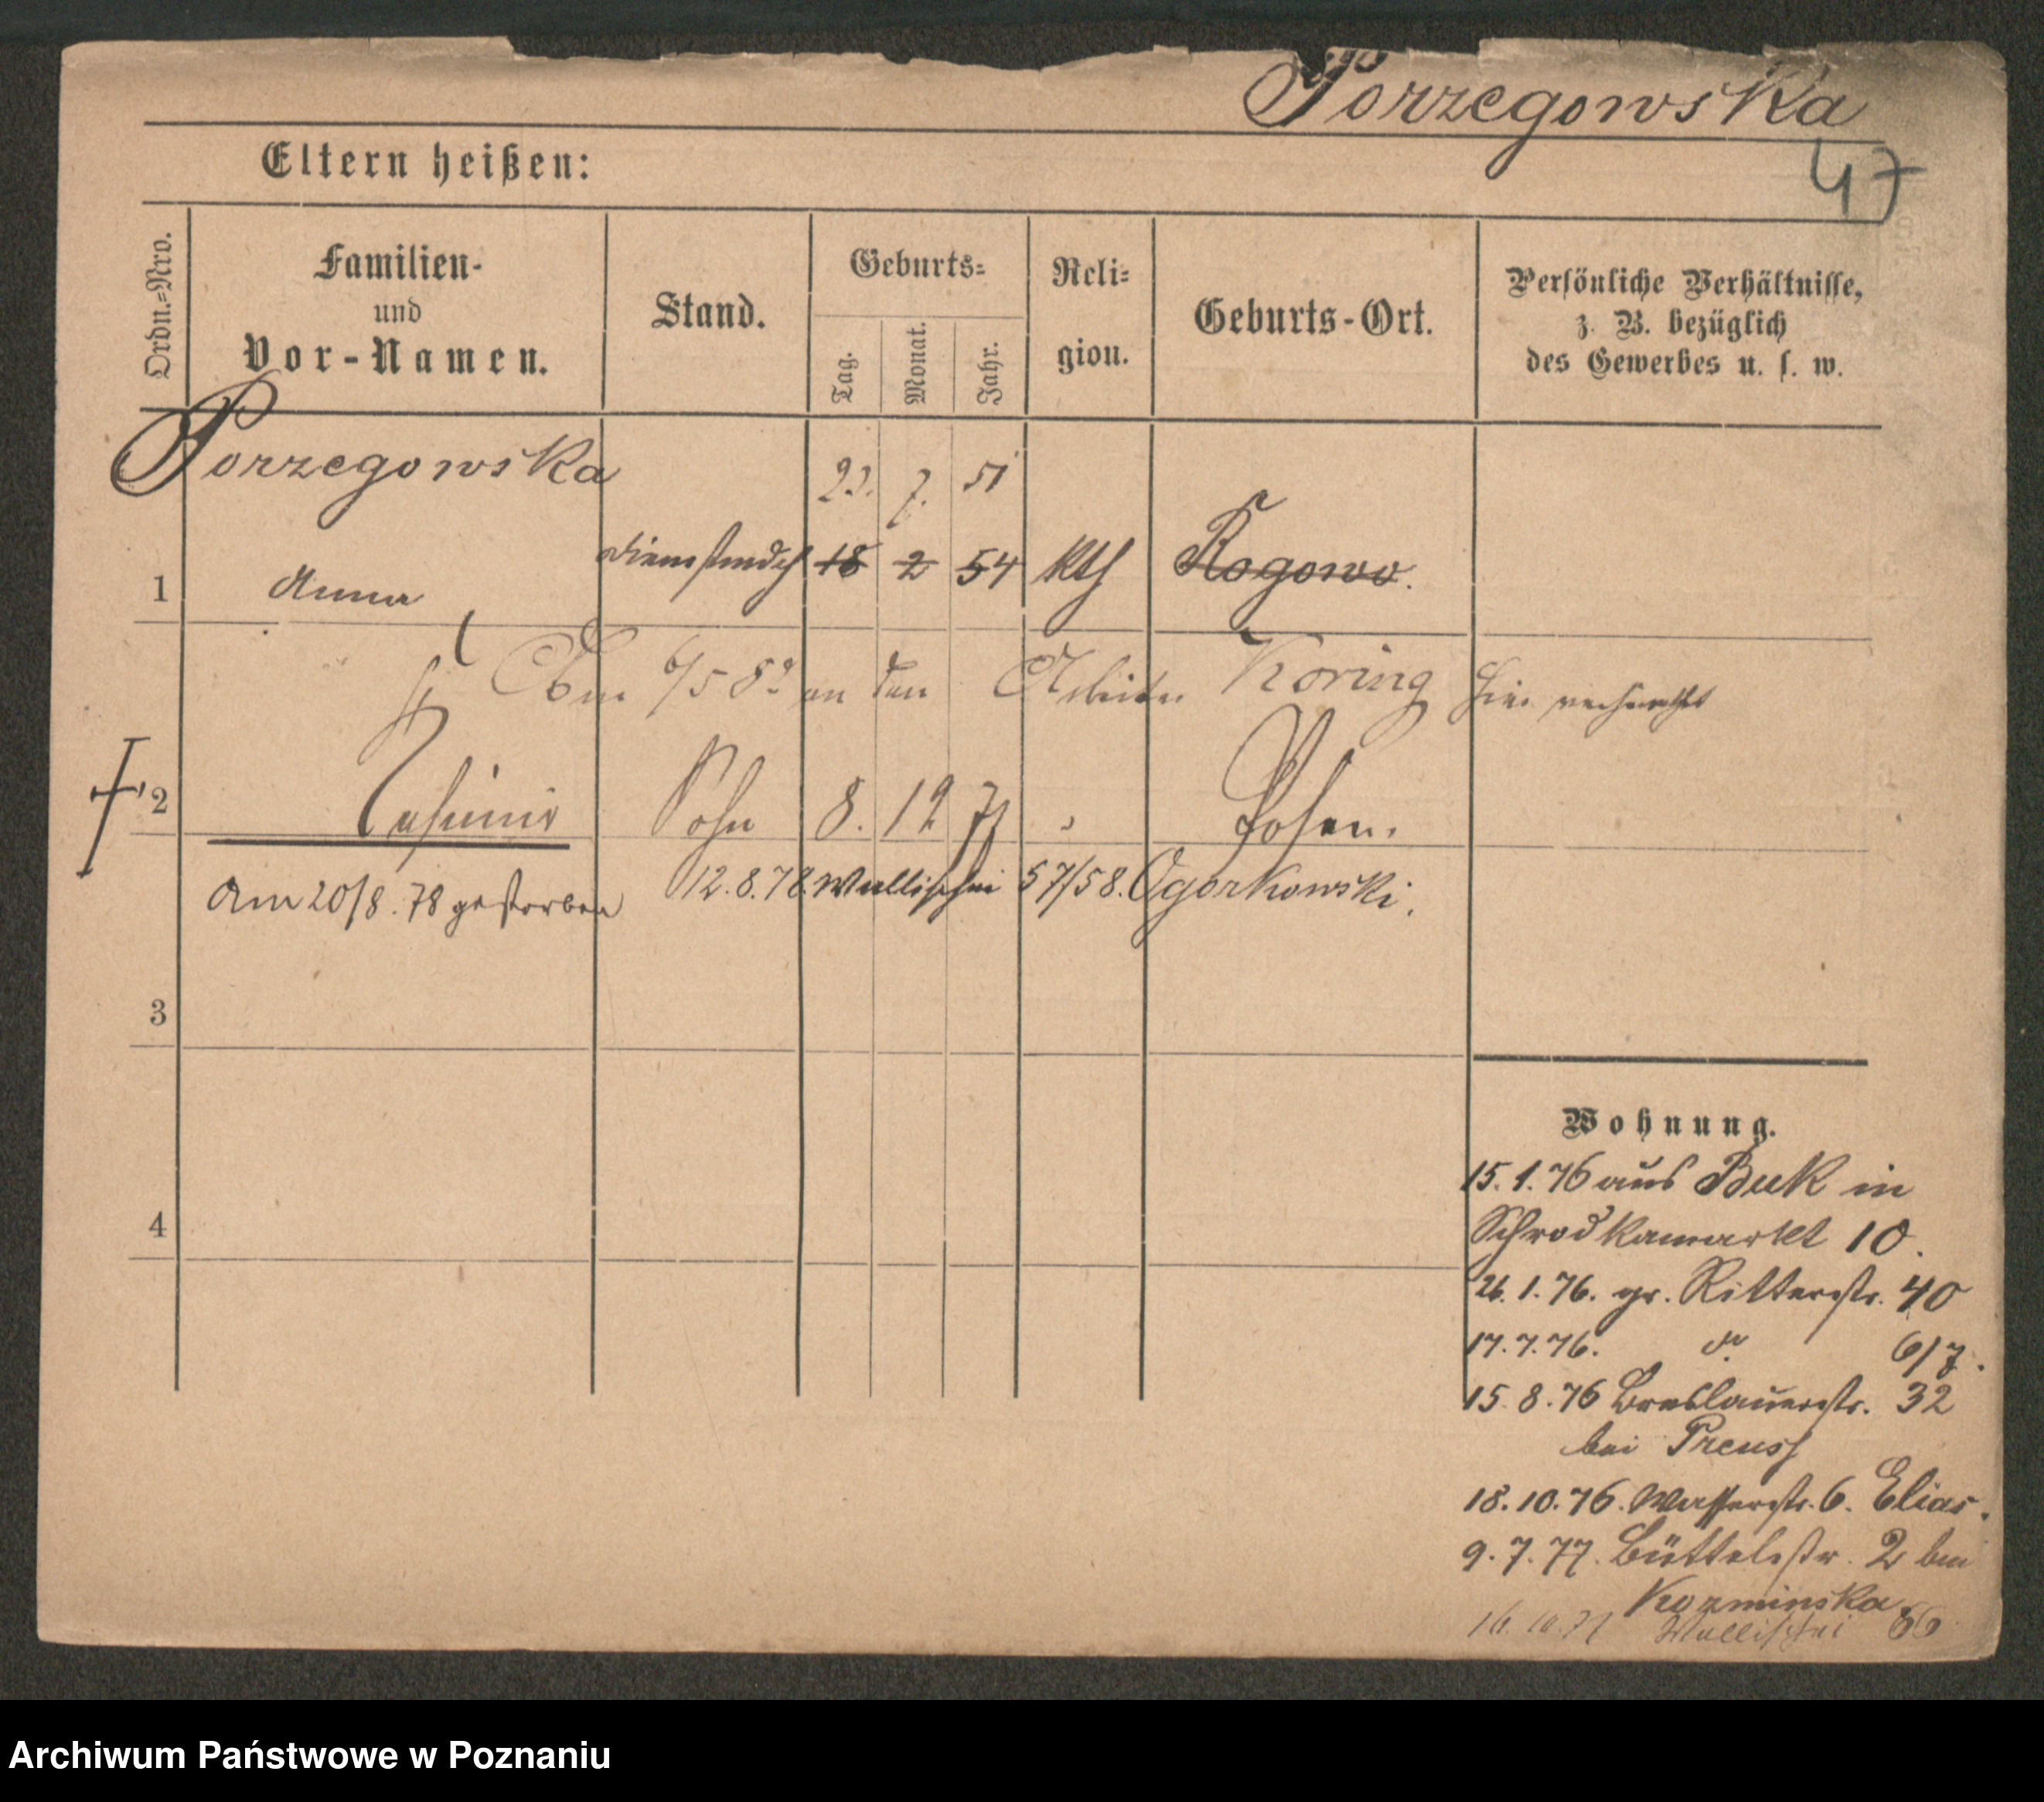 Porzegowska
47
Eltern heißen:
Ordn.=Nro.
Familien-
und
Vor-Namen.
Stand.
Geburts=
Tag.
Monat.
Jahr.
Reli=
gion.
Geburts-Ort.
Persönliche Verhältnisse,
z. B. bezüglich
des Gewerbes u. s. w.
Porzegowska
7. 51
1 Anna 18 2 54 kth Rogowo.
6/5 an den Arbeiter Koring hier verheirathet
2 Casimir Sohn 8. 12 77 Posen.
12.8.78. Wallischei 57/58. Ogorkowski.
Am 20/8. 78 gestorben
3
4
Wohnung.
15.1.76 aus Buk in
Schrodkamarkt 10.
26.1.76. gr. Ritterstr. 40
17.7.76. do 6/7.
15.8.76 Breslauerstr. 32
bei Preuss
18.10.76. Wasserstr. 6. Elias.
9.7.77. Büttelstr. 2 bei
Kozminska.
16.10.77 Wallischei 66
Archiwum Państwowe w Poznaniu